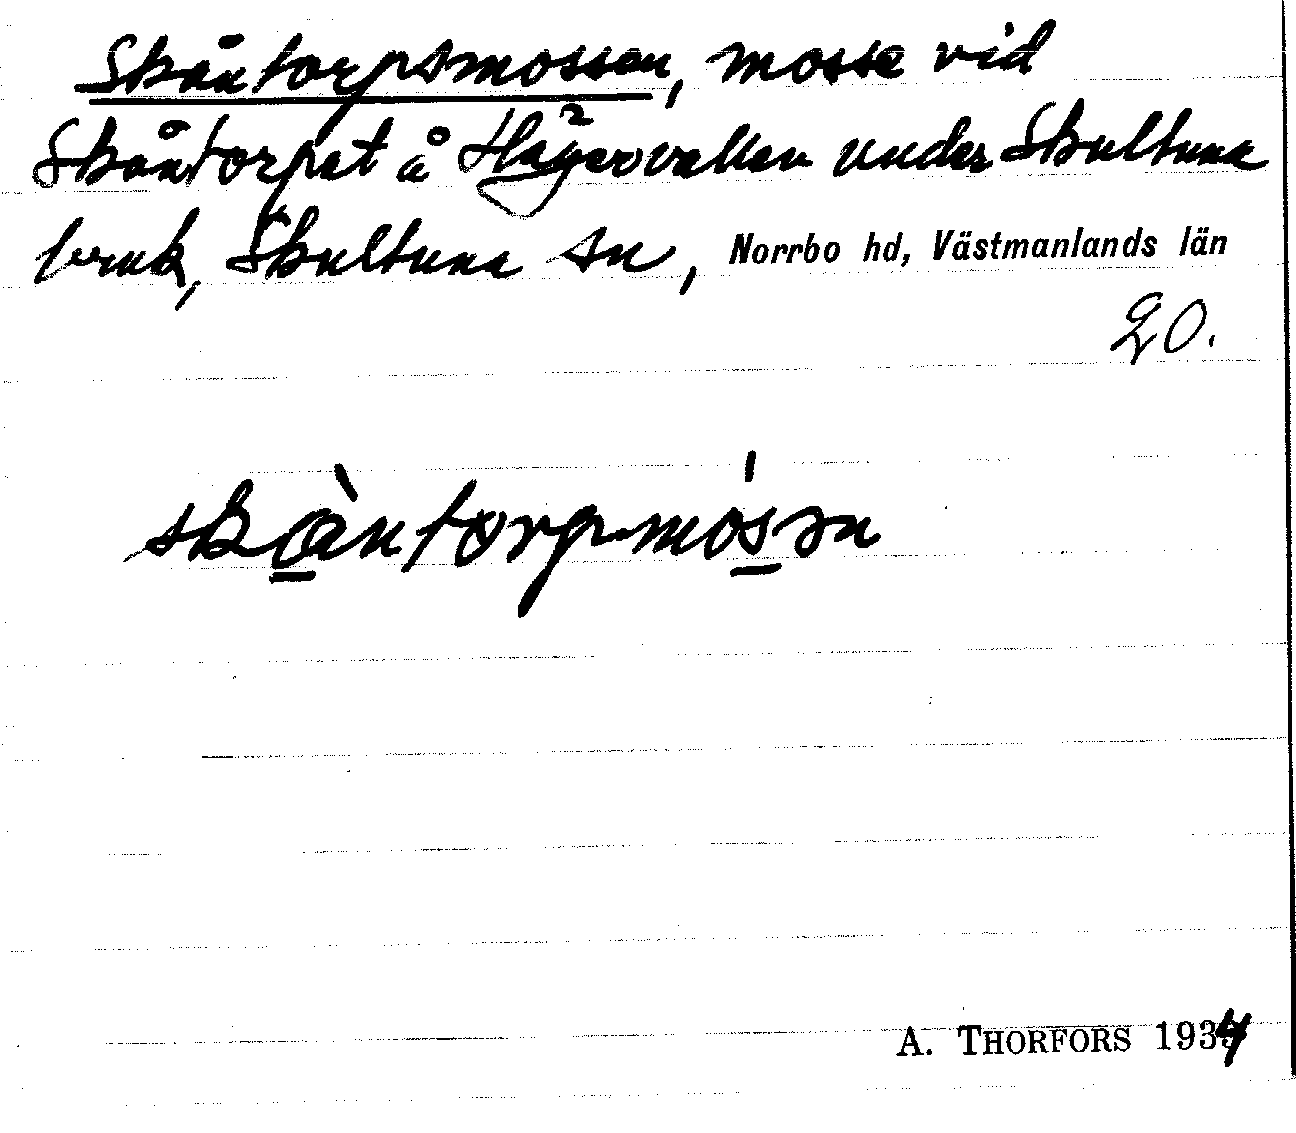 Skåntorpsmossen, mosse vid
Skåntorpet å Hägervallen under Skultuna
bruk, Skultuna sn, Norrbo hd, Västmanlands län
20.
skòntorpmósən
A. THORFORS 1934